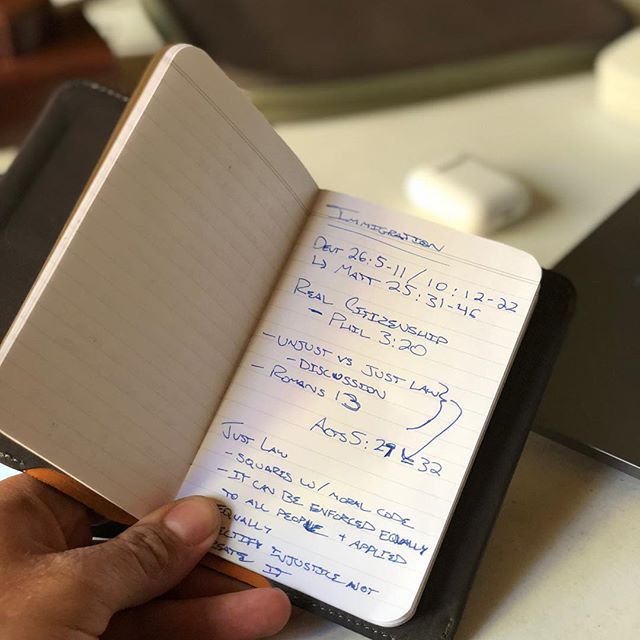 IMMIGRATION
DEUT 26:5-11 / 10:12-22
↳ MATT 25:31-46
REAL CITIZENSHIP
- PHIL 3:20
- UNJUST VS JUST LAW
- DISCUSSION
- ROMANS 13
ACTS 5:29 32
JUST LAW
- SQUARES W/ MORAL CODE
- IT CAN BE ENFORCED EQUALLY
TO ALL PEOPLE + APPLIED
EQUALLY
INJUSTICE NOT
IT